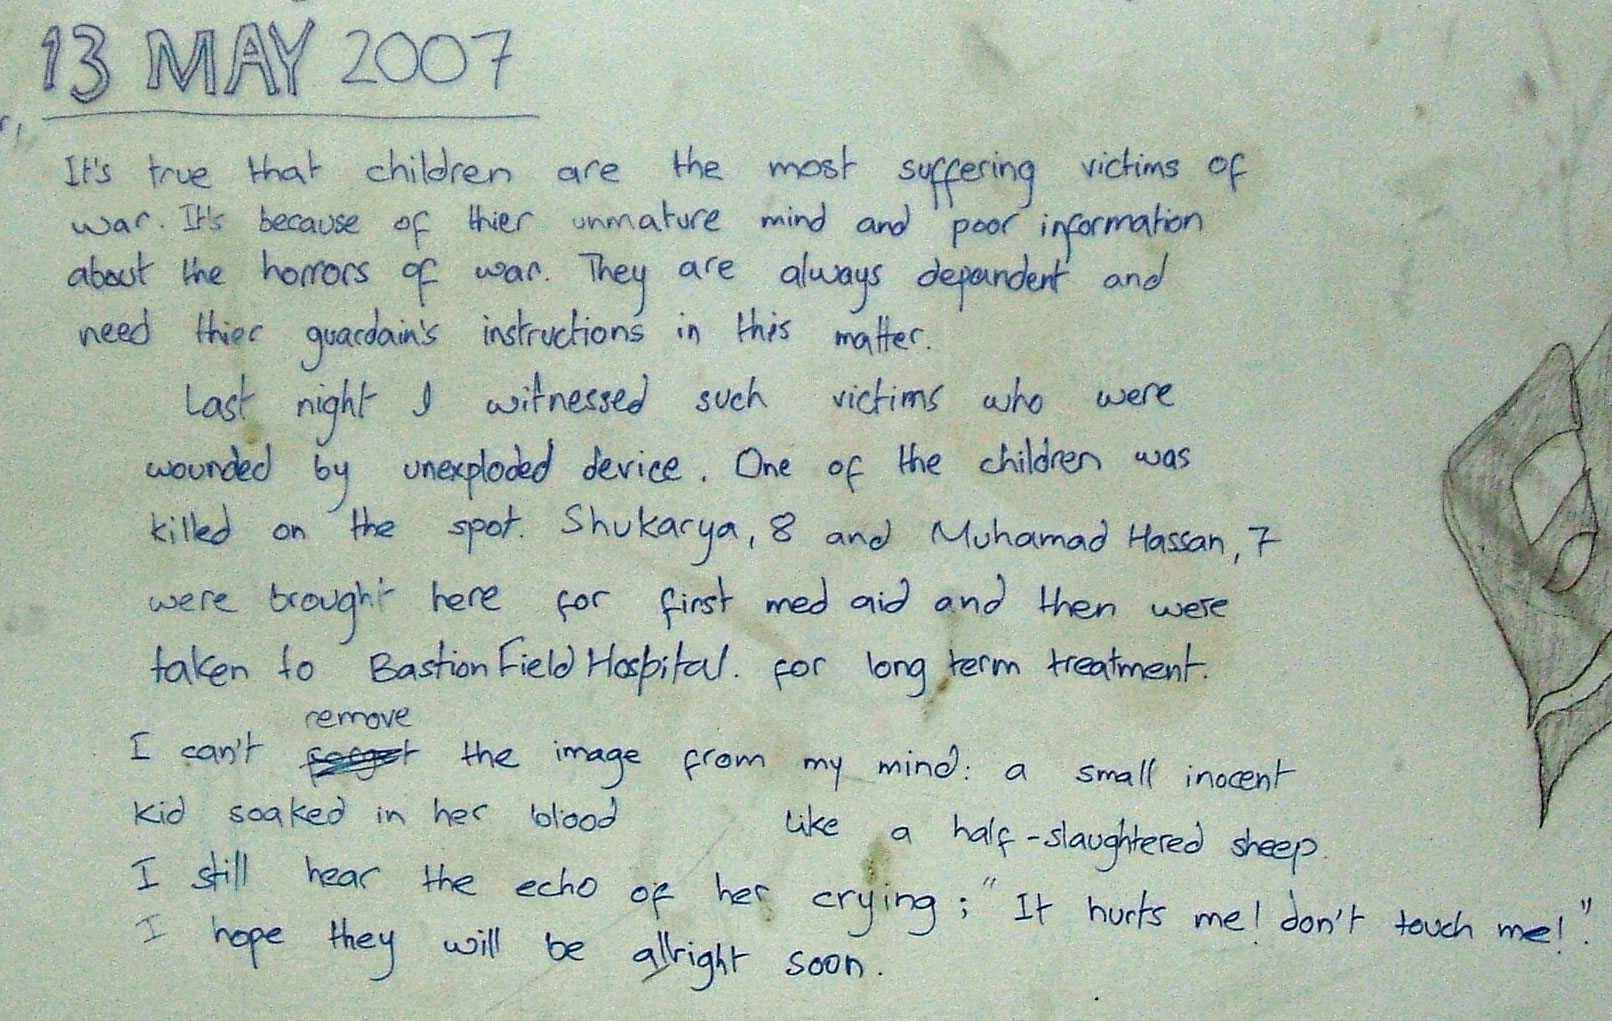 13 MAY 2007
It's true that children are the most suffering victims of
war. It's because of thier unmature mind and poor information
about the horrors of war. They are always dependent and
need thier guardain's instructions in this matter.
Last night I witnessed such victims who were
wounded by unexploded device. One of the children was
killed on the spot. Shukarya, 8 and Muhamad Hassan, 7
were brought here for first med aid and then were
taken to Bastion Field Hospital. for long term treatment.
remove
I can't forget the image from my mind: a small inocent
kid soaked in her blood like a half-slaughtered sheep.
I still hear the echo of her crying; "It hurts me! don't touch me!".
I hope they will be allright soon.